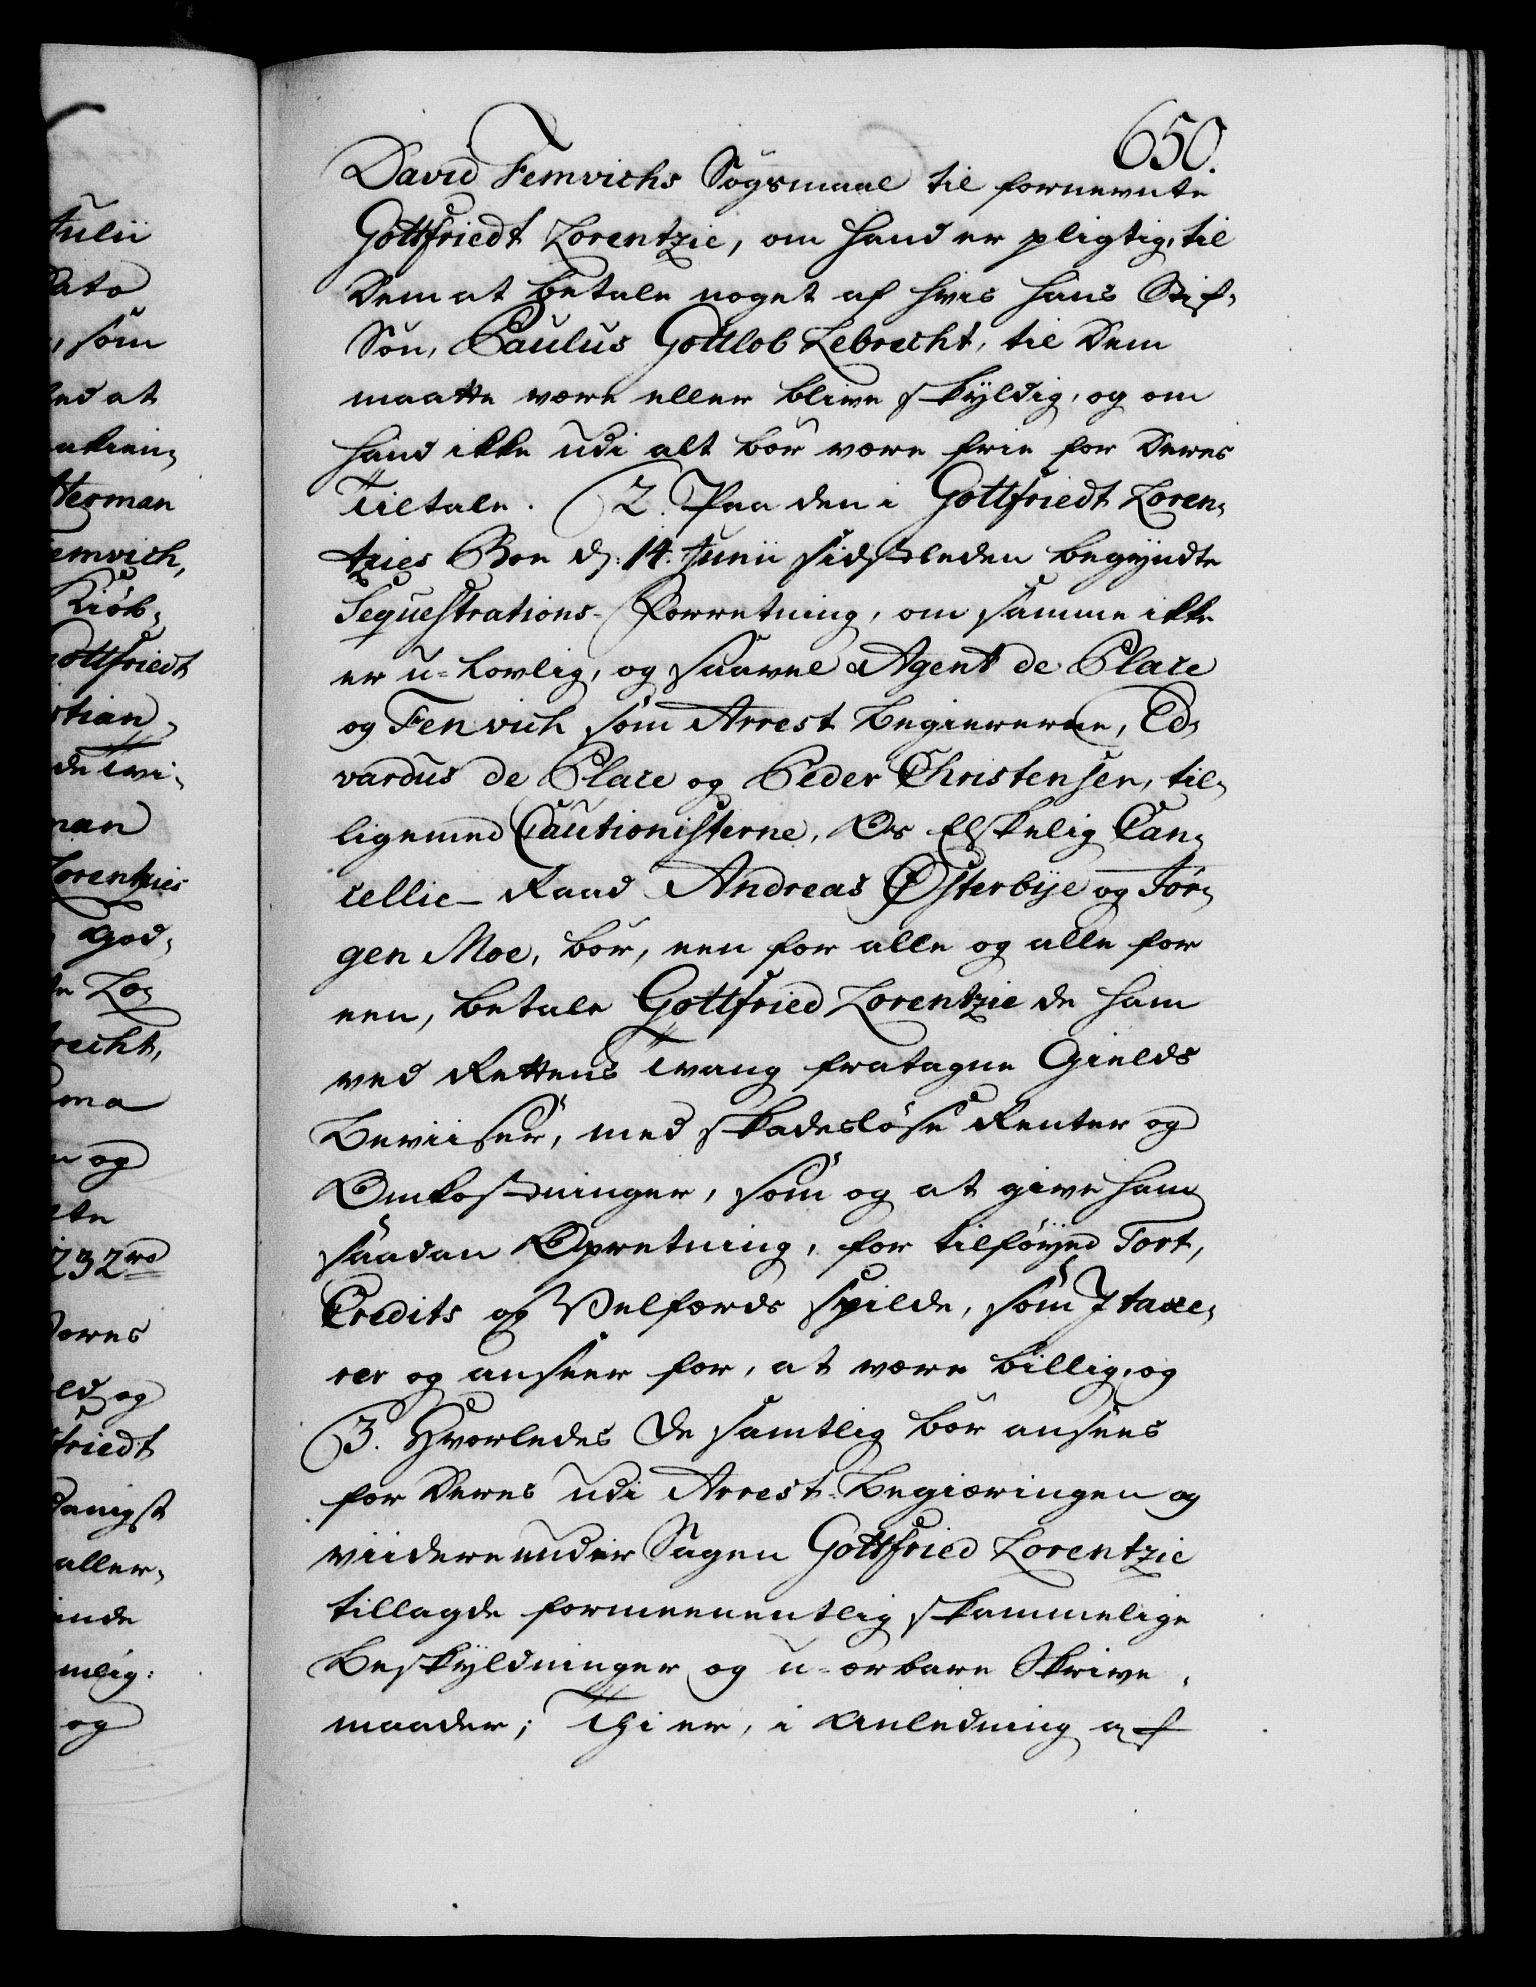 650.
David Femvichs Søgsmaal til fornevnte
Gottfriedt Lorentzie, om hand er pligtig, til
Dem at betale noget af hvis hans Stif-
Søn, Paulus Gottlob Lebrecht, til Dem
maatte være eller blive skyldig, og om
hand ikke udi alt bør være frie for Deres
Tiltale. 2. Paa den i Gottfriedt Loren-
tzies Boe d: 14. Junii sidstleden begyndte
Sequestrations-Forretning, om samme ikke
er u-lovlig, og saavel Agent de Place
og Fenvich som Arrest Begiererne, Ed-
vardus de Place og Peder Christensen, til-
ligemed Cautionisterne, Os Elskelig Can-
cellie-Raad Andreas Østerbye og Jør-
gen Moe, bør, een for alle og alle for
een, betale Gottfried Lorentzie de ham
ved Rettens Tvang fratagne Gields
Beviiser, med skadesløse Renter og
Omkostninger, som og at give ham
saadan Opretning, for tilføyed Tort,
Credits og Velferds spilde, som I taxe-
rer og anseer for, at være billig, og
3. Hvorledes De samtlig bør ansees
for Deres udi Arrest-Begiæringen og
viidere under Sagen Gottfried Lorentzie
tillagde formeenentlig skammelige
Beskyldninger og u-ærbare Skrive-
maader; Thi er, i Anledning af
Julii
Dato
, som
ed at
Herman
emvich,
Kiøb-
Gottfriedt
stian
de Tvi-
man
Lorentzies
God-
Lo-
recht,
og
1732
Deres
og
friedt
danigst
aller-
inde
mlig:
og